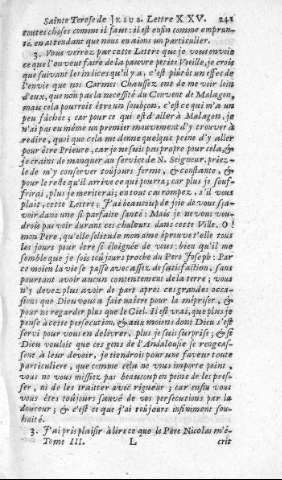 Sainte Terese de Jesus. Lettre XXV. 241
toutes choses comme il faut : il est enfin comme emprun-
té, en attendant que nous en aions un particulier.
3. Vous verrez par cette Lettre que je vous envoie
ce que l'on veut faire de la pauvre petite Vieille, je crois
que suivant les indices qu'il y a, c'est plûtôt un effet de
l'envie que nos Carmes Chaussez ont de me voir loin
d'eux, que non pas la necessité du Convent de Malagon,
mais cela pourroit être un soubçon. c'est ce qui m'a un
peu fâchée ; car pour ce qui est d'aller à Malagon, je
n'ai pas eu même un premier mouvement d'y trouver à
redire, quoi que cela me donne quelque peine d'y aller
pour être Prieure, car je ne suis pas propre pour cela, &
je crains de manquer au service de N. Seigneur, priez-
le de m'y conserver toujours ferme, & constante, &
pour le reste qu'il arrive ce qui pourra, car plus je souf-
frirai, plus je meriterai ; en tout cas rompez, s'il vous
plait, cette Lettre : J'ai beaucoup de joie de vous sça-
voir dans une si parfaite santé : Mais je ne vous vou-
drois pas voir durant ces chaleurs dans cette Ville. O !
mon Pere, qu'elle solitude mon ame éprouve t'elle tous
les jours pour être si éloignée de vous : bien qu'il me
semble que je sois toûjours proche du Pere Joseph : Par
ce moien la vie se passe avec assez de satisfaction, sans
pourtant avoir aucun contentement de la terre ; vous
n'y devez plus avoir de part après ces grandes occa-
sions que Dieu vous a fait naître pour la mépriser, &
pour ne regarder plus que le Ciel. Il est vrai, que plus je
pense à cette persecution, & aux moiens dont Dieu s'est
servi pour vous en délivrer, plus je suis surprise ; & si
Dieu vouloit que ces gens de l'Andalousie se rengeas-
sent à leur devoir, je tiendrois pour une faveur toute
particuliere, que comme cela ne vous importe point,
vous ne vous missiez pas beaucoup en peine de les pres-
ser, ni de les traitter avec rigueur ; car enfin vous
vous êtes toujours sauvé de vos persecutions par la
douceur ; & c'est ce que j'ai toûjours infiniment sou-
haité.
3. J'ai pris plaisir à lire ce que le Père Nicolas m'é-
Tome III. L crit